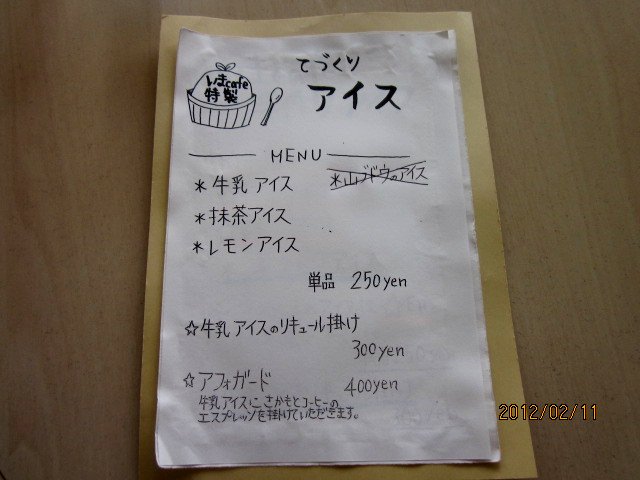 いまcafe
特製
てづくり
アイス
MENU
*牛乳アイス
*山ブドウのアイス
*抹茶アイス
*レモンアイス
単品 250yen
☆牛乳アイスのリキュール掛け
300yen
☆アフォガード 400yen
牛乳アイスにさかもとコーヒーの
エスプレッソを掛けていただきます。
2012/02/11